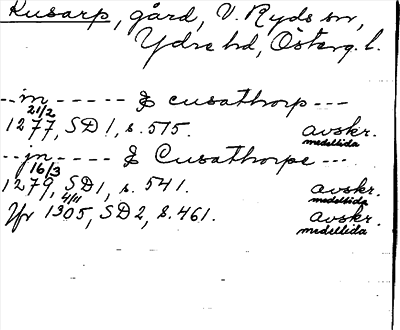 Kusarp, gård, V. Ryds sn,
Ydre hd, Österg. l.
--in----- & cusathorp---
21/2
1277, SD 1, s. 575. avskr.
medeltida
--in---- & Cusathorpe---
16/3
1279, SD 1, s. 541. avskr.
4/11 medeltida
Yfr 1305, SD 2, s. 461. avskr.
medeltida